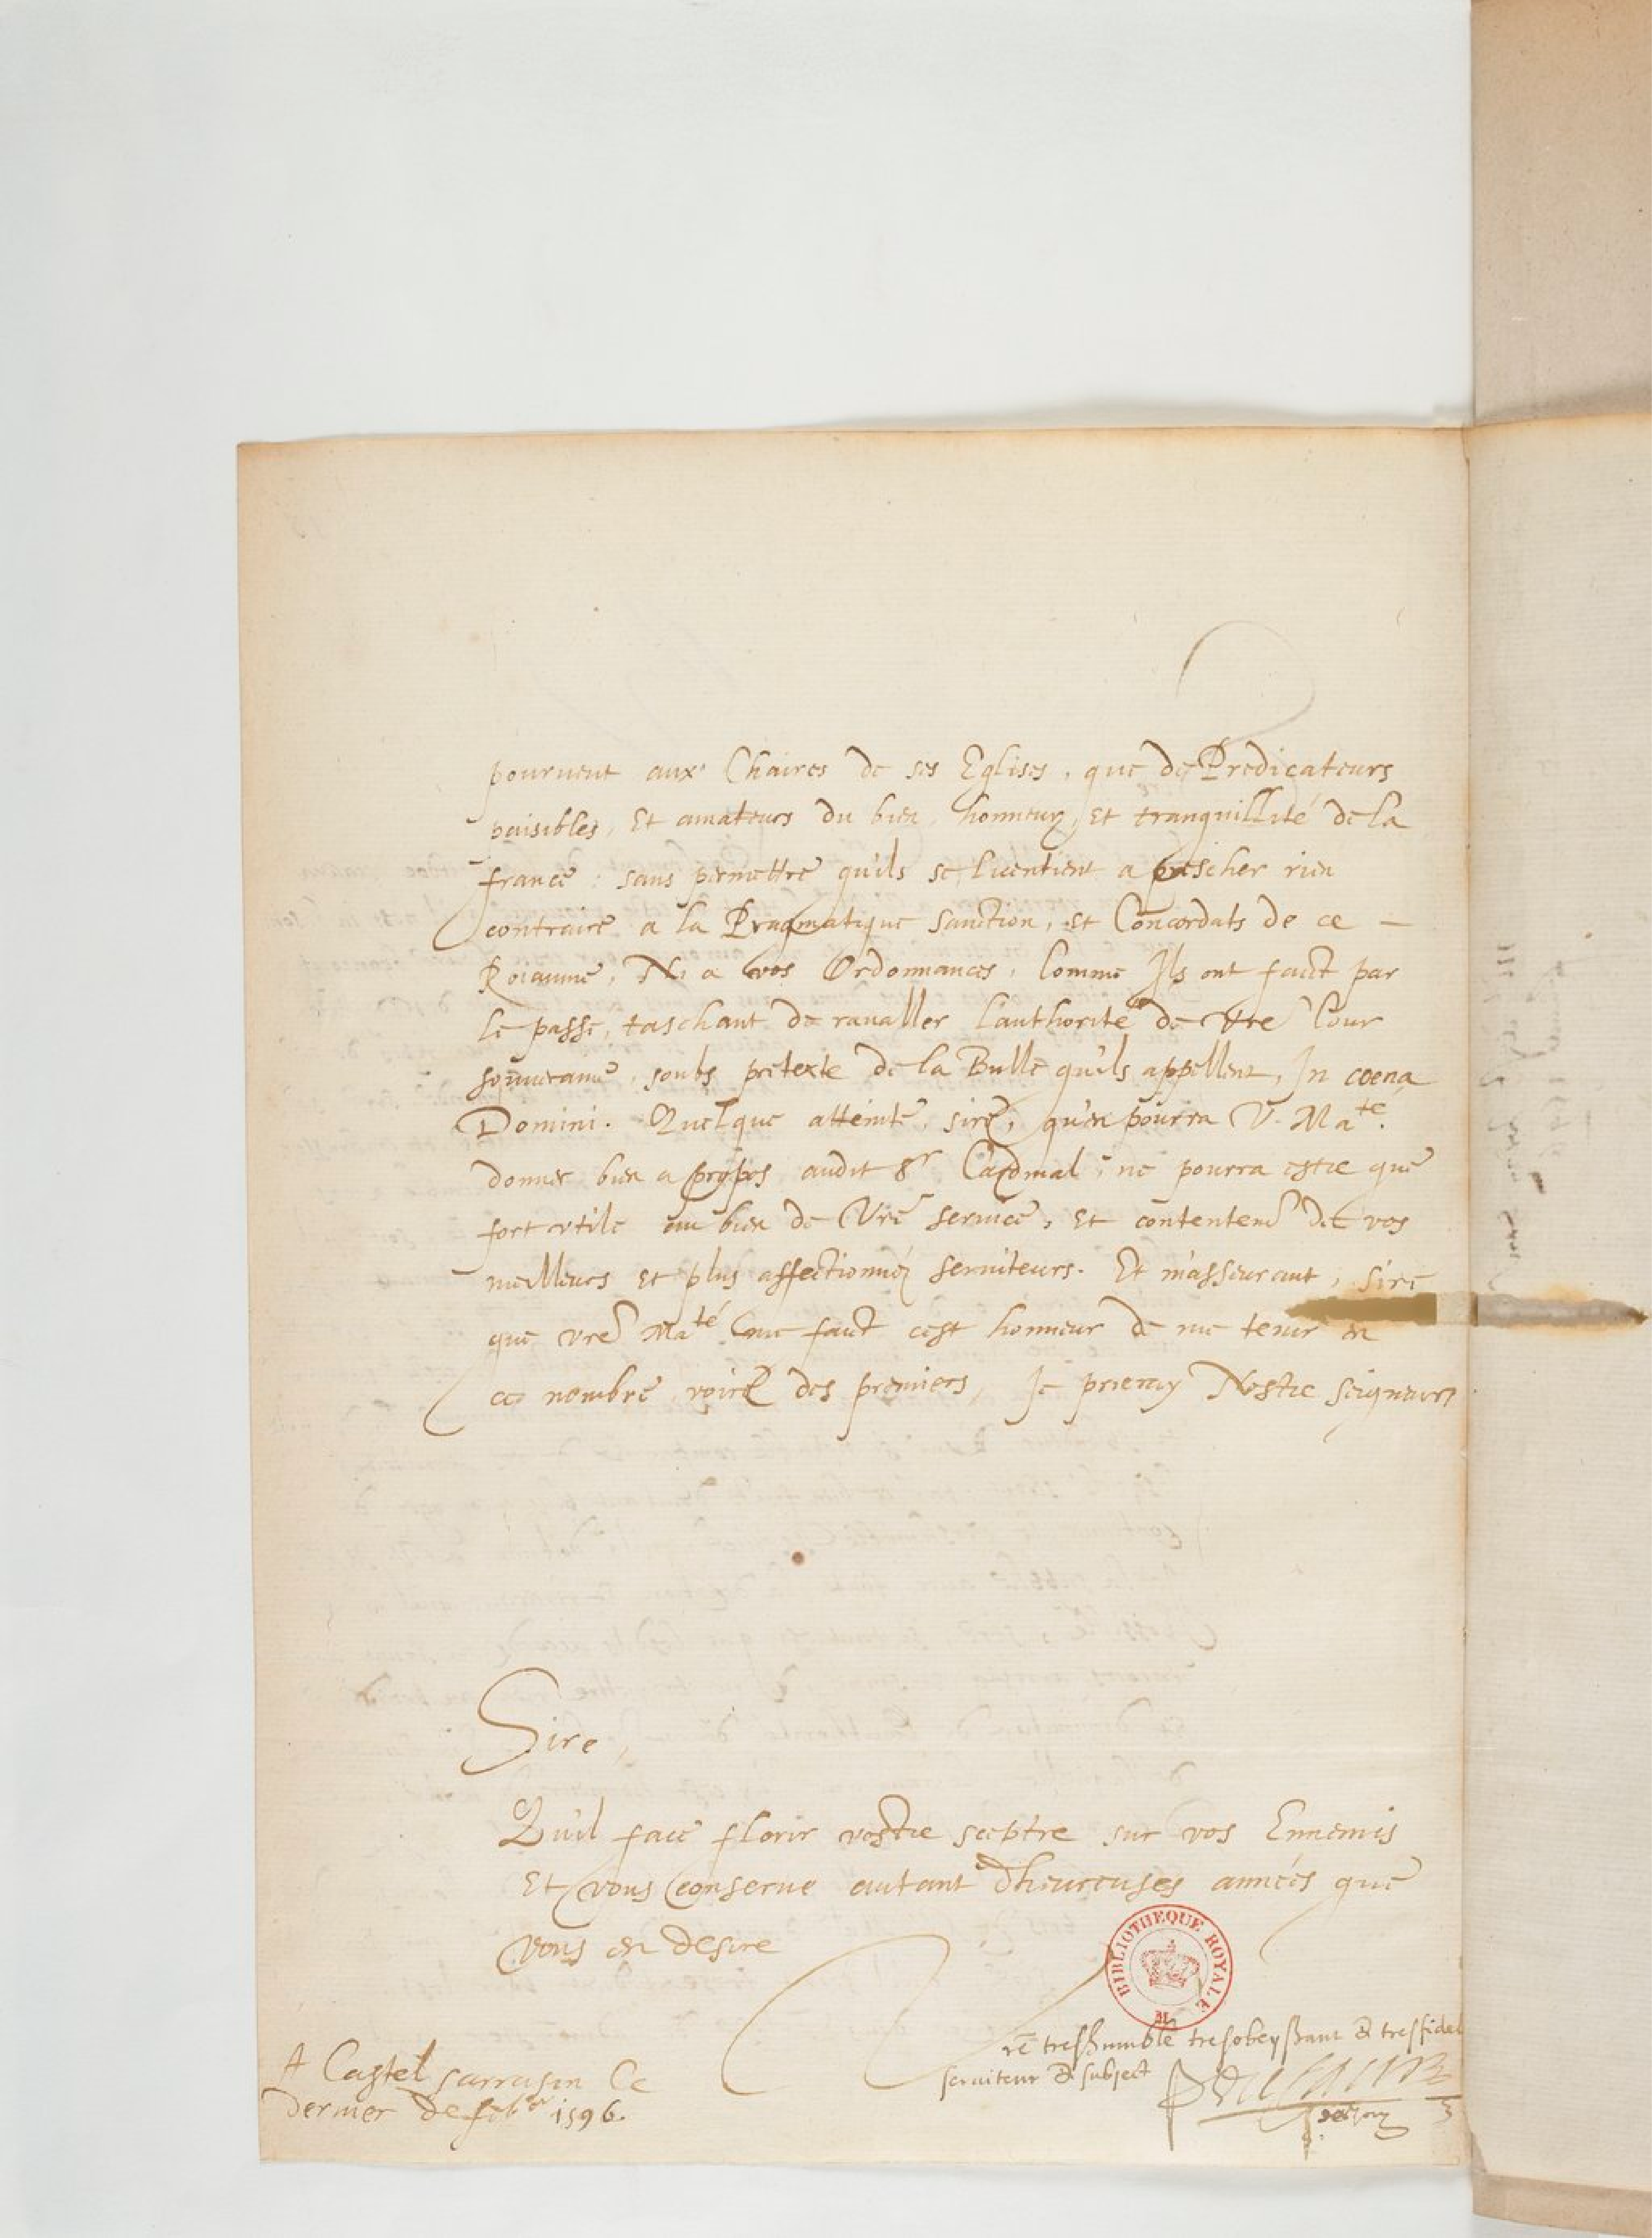 pourueut aux Chaires de ses Eglises, que de Predicateurs
paisibles, Et amateurs du bien, honneur, Et tranquillité de la
france: sans permettre qu'ils se licentient a prescher rien
contraire a la Pragmatique Sanction, et Concordats de ce —
Roiaume, Ni a vos Ordonnances, Comme Ils ont faict par
le passé, taschant de raualler l'authorité de Vre Cour
souueraine, soubs pretexte de la Bulle qu'ils appellent, In coena
Domini. Quelque atteinte, sire, qu'en pourra V. Ma.té
donner bien a propos audit Sr Cardinal, ne pourra estre que
fort vtile au bien de Vre seruice, Et contentemt de vos
meilleurs Et plus affectionnéz seruiteurs. Et m'asseurant, sire
que vre Ma.té me faict cest honneur de me tenir en
ce nombre, voire des premiers, Je prieray Nostre Seigneur
Sire,
Qu'il face florir vostre sceptre sur vos Ennemis
Et vous conserue autant d'heureuses années que
vous en desire
BIBLIOTHEQUE ROYALE
A Castel sarrasin Ce
dernier de febr 1596.
vre treshumble tresobeyssant & tresfidel
seruiteur & subject